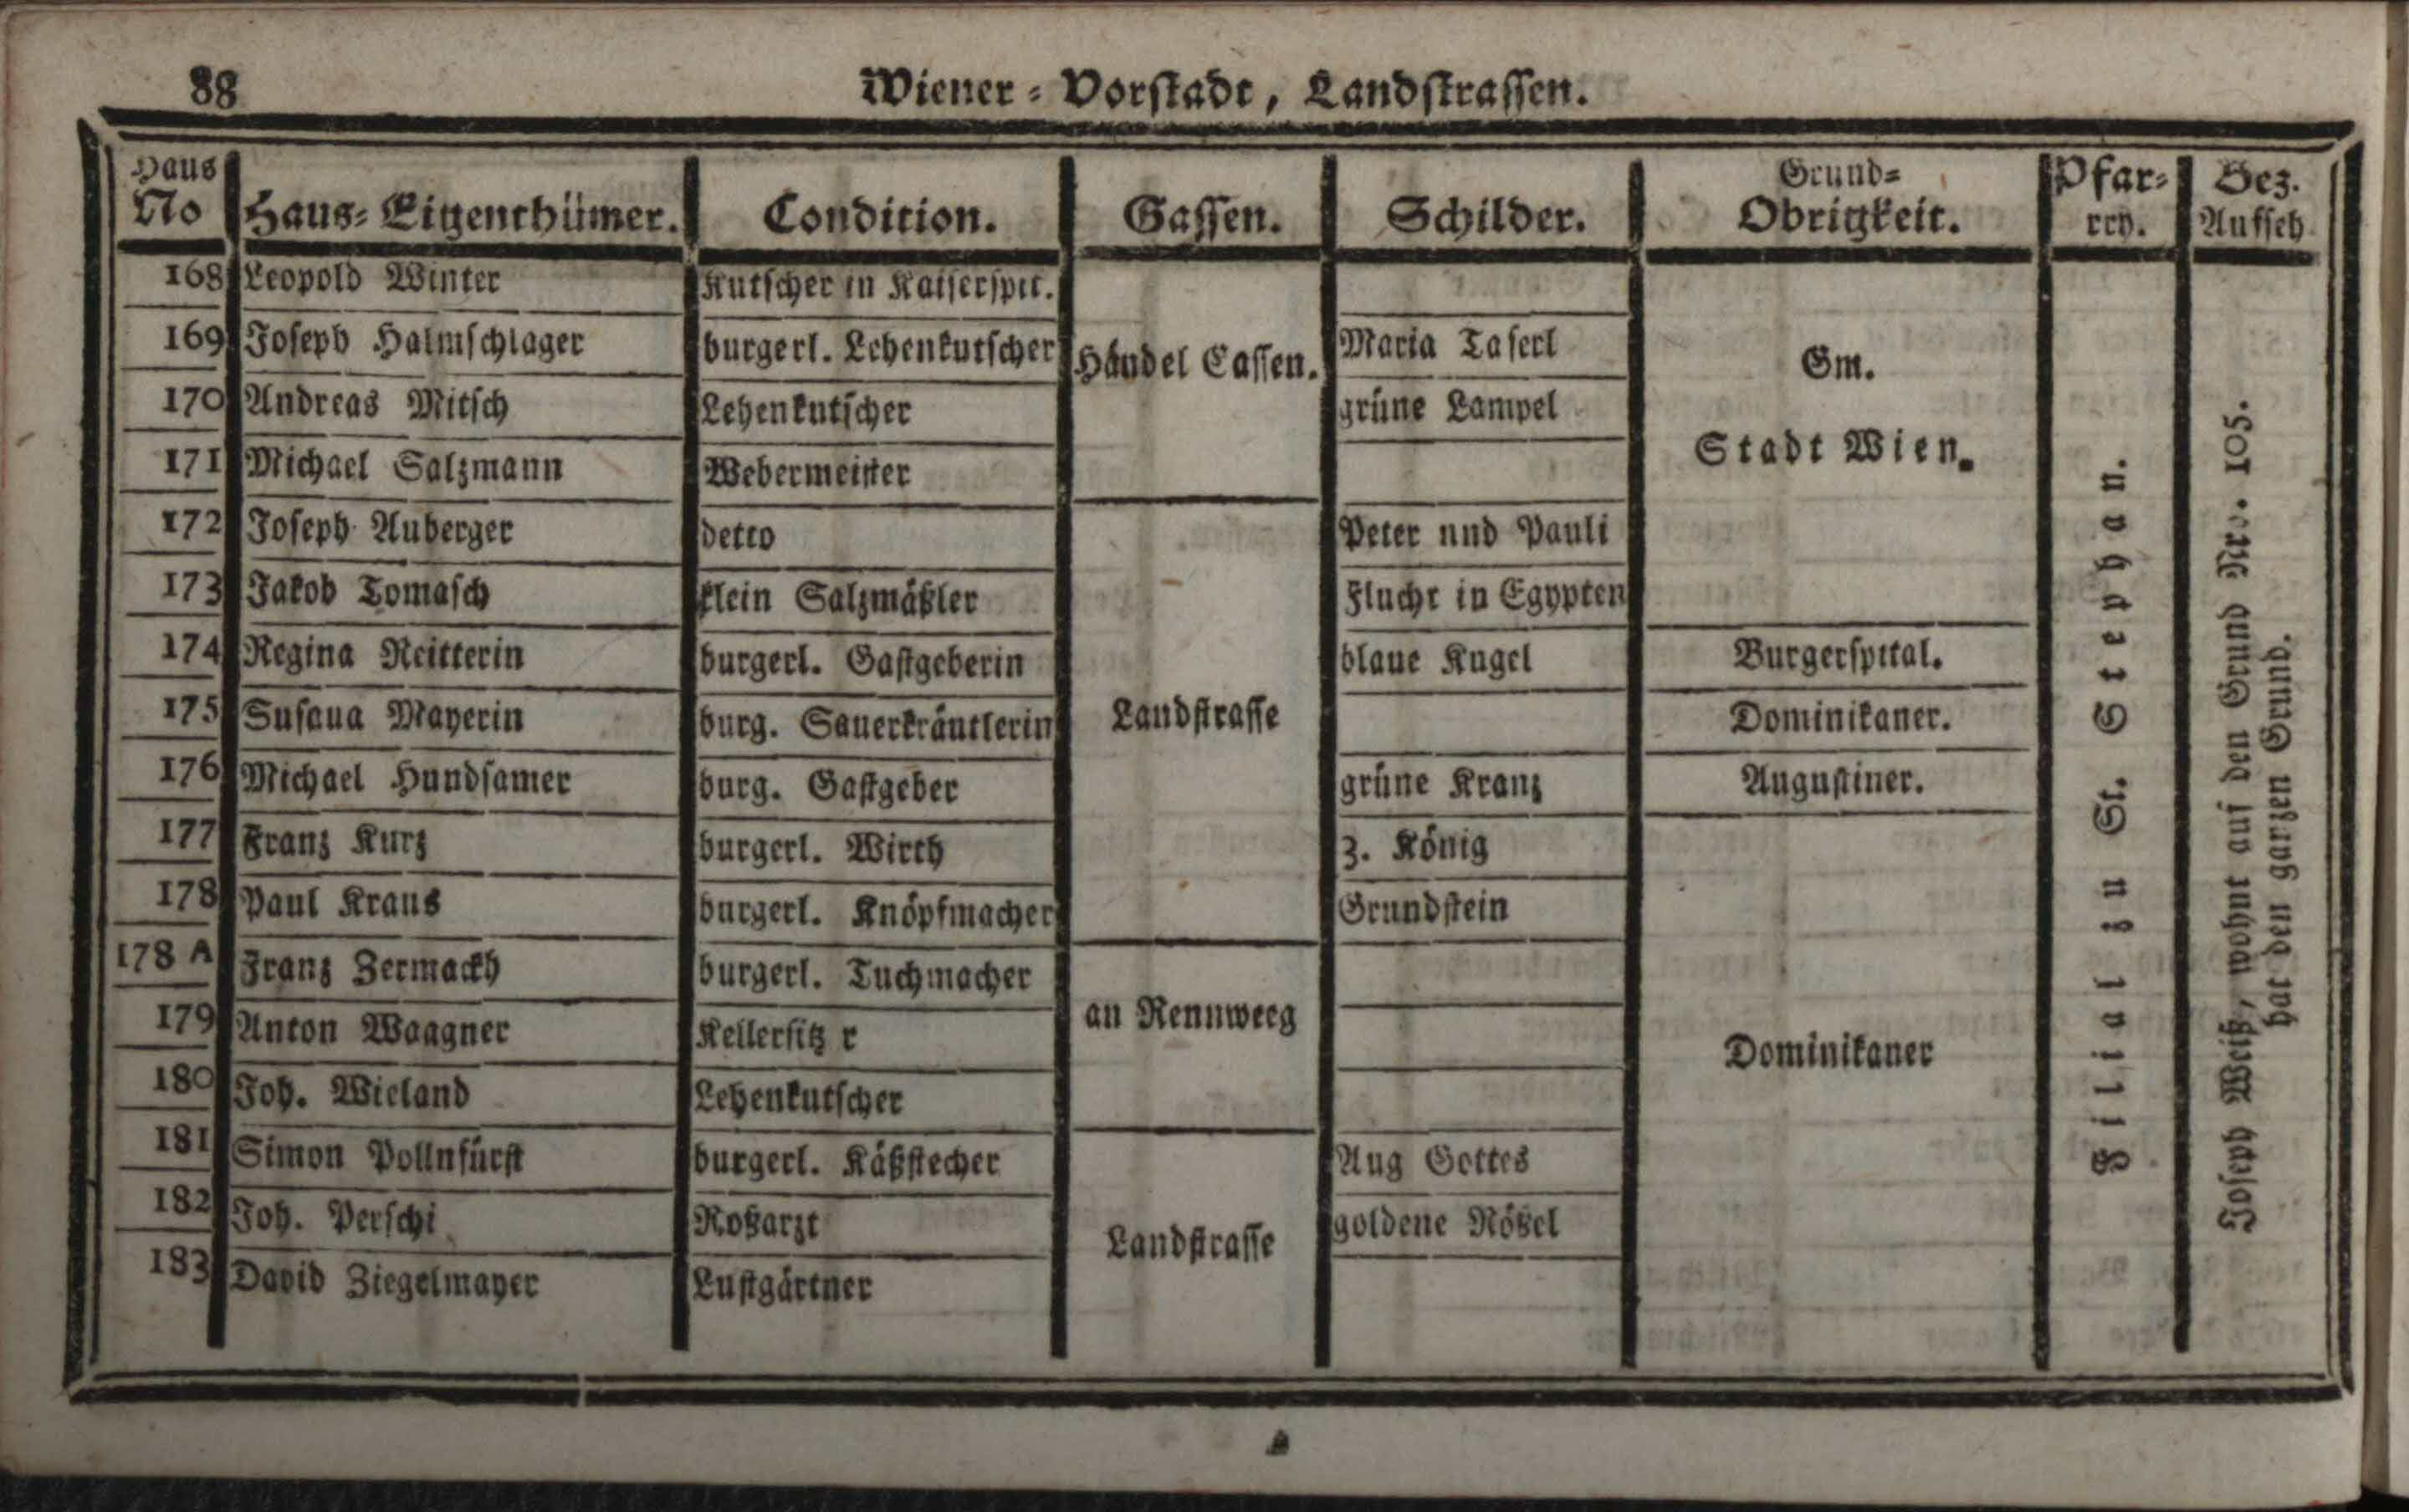 88
Wiener = Vorstadt, Landstrassen.
Haus No Haus= Eigenthümer. Condition. Gassen. Schilder. Grund= Obrigkeit. Pfar= rey. Bez. Aufseh.
168 Leopold Winter Kutscher in Kaiserspit.
169 Joseph Halmschlager burgerl. Lehenkutscher Händel Gassen. Maria Taferl Gm.
170 Andreas Mitsch Lehenkutscher grüne Lampel
171 Michael Salzmann Webermeister Stadt Wien.
172 Joseph Auberger detto Peter nnd Pauli
173 Jakob Tomasch klein Salzmäßler Flucht in Egypten
174 Regina Reitterin burgerl. Gastgeberin blaue Kugel Burgerspital.
175 Susaua Mayerin burg. Sauerkräutlerin Landstrasse Dominikaner.
176 Michael Hundsamer burg. Gastgeber grüne Kranz Augustiner.
177 Franz Kurz burgerl. Wirth 3. König
178 Paul Kraus burgerl. Knöpfmacher Grundstein
178 A Franz Zermackh burgerl. Tuchmacher
179 Anton Waagner Kellersitz r an Rennweeg
180 Joh. Wieland Lehenkutscher Dominikaner
181 Simon Pollnfürst burgerl. Käßstecher Aug Gottes
182 Joh. Perschi Roßarzt Landstrasse goldene Rößel
183 David Ziegelmayer Lustgärtner
Filial zu St. Stephan.
Joseph Weiß, wohnt auf den Grund Nro. 105.
hat den ganzen Grund.